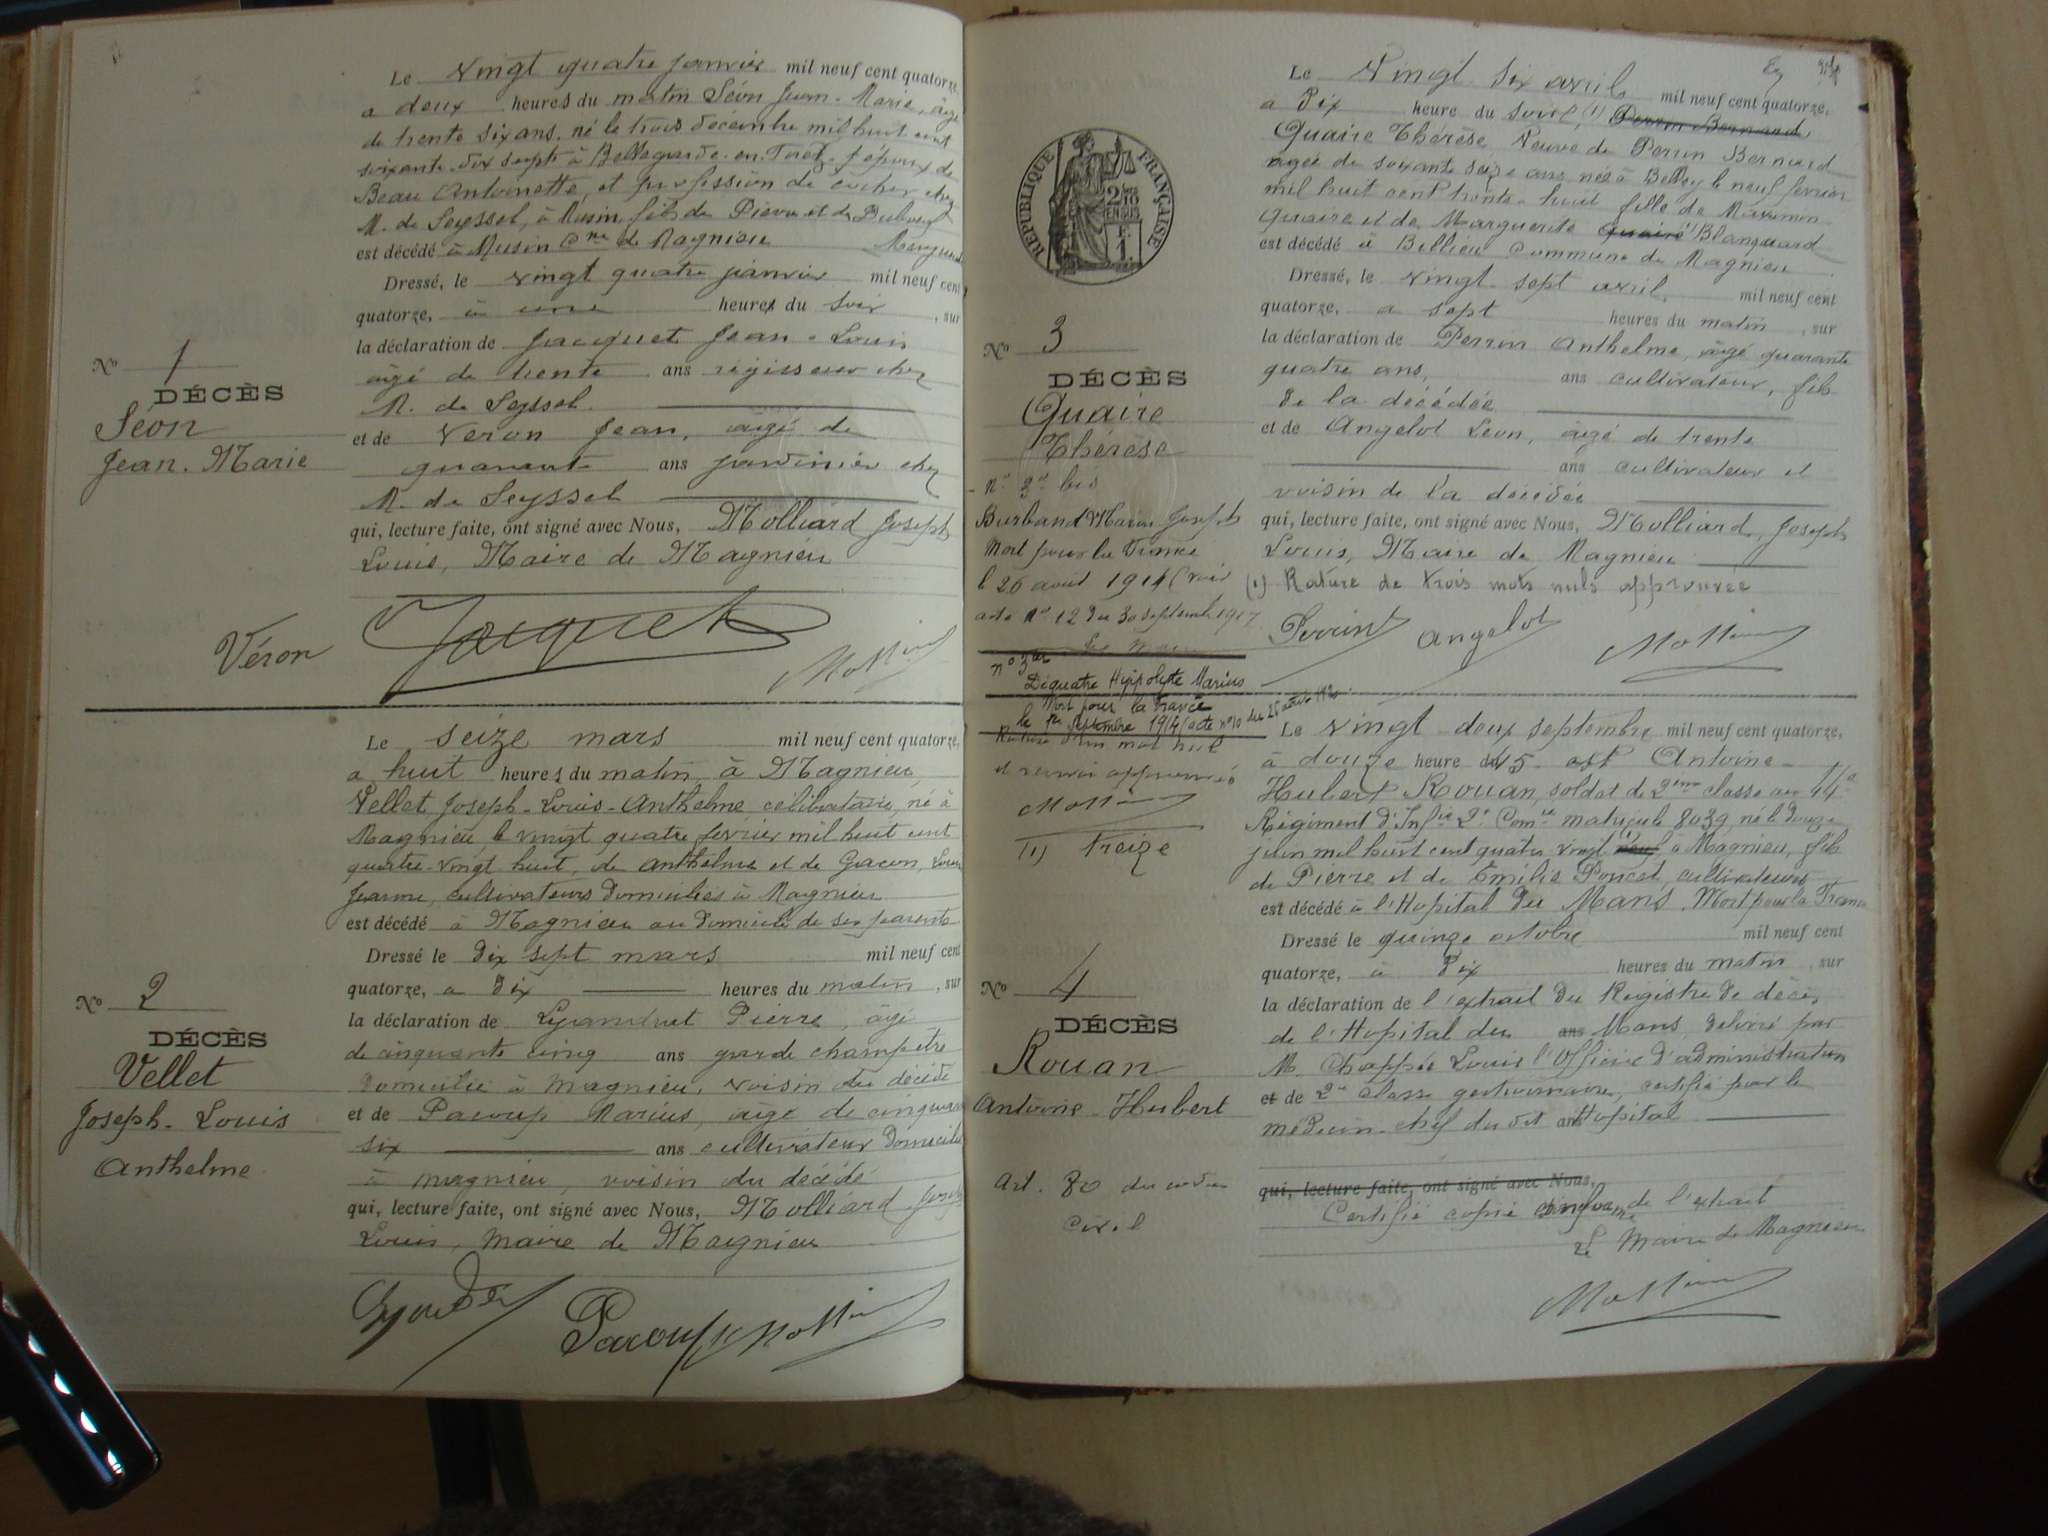 Le vingt quatre janvier mil neuf cent quatorze,
a deux heures du matin Séon Jean-Marie, âgé
de trente six ans, né le trois décembre mil huit cent
soixante dix sept à Bellegarde-en-Forez, époux de
Beau Antoinette, et profession de cocher chez
M. de Seyssel, à Musin, fils de Pierre et de
est décédé à Musin Cne de Magnieu
Dressé, le vingt quatre janvier mil neuf cent
quatorze, à une heure du soir, sur
la déclaration de Jacquet Jean-Louis
âgé de trente ans régisseur chez
M. de Seyssel.
et de Veron Jean, âgé de
quarante ans jardinier chez
M. de Seyssel
qui, lecture faite, ont signé avec Nous, Molliard Joseph
Louis, Maire de Magnieu
No 1
DÉCÈS
Séon
Jean-Marie
Véron Jacquet
Le seize mars mil neuf cent quatorze,
a huit heures du matin, à Magnieu
Vellet Joseph-Louis-Anthelme célibataire, né à
Magnieu le vingt quatre février mil huit cent
quatre-vingt huit, de Anthelme et de Gacon, Louise
Jeanne, cultivateurs domiciliés à Magnieu
est décédé à Magnieu au domicile de ses parents
Dressé le dix sept mars mil neuf cent
quatorze, a dix heures du matin, sur
la déclaration de Pierre, âgé
de cinquante cinq ans garde champêtre
domicilié à Magnieu, voisin du décédé
et de Pacoup Marius, âgé de cinquante
six ans cultivateur domicilié
à Magnieu, voisin du décédé
qui, lecture faite, ont signé avec Nous, Molliard Joseph
Louis, Maire de Magnieu
No 2
DÉCÈS
Vellet
Joseph-Louis
Anthelme
Pacoup
Le Vingt-six avril mil neuf cent quatorze,
a dix heure du soir, (1) Perrin Bernard,
Quaire Thérèse Veuve de Perrin Bernard
agée de soixante seize ans née à Belley le neuf février
mil huit cent trente-huit fille de
Quaire et de Marguerite Quaire Blanquard
est décédé à Bellieu Commune de Magnieu
Dressé, le vingt sept avril, mil neuf cent
quatorze, a sept heures du matin, sur
la déclaration de Perrin Anthelme, âgé quarante
quatre ans, ans cultivateur, fils
de la décédée
et de Angelot Léon, âgé de trente
ans cultivateur et
voisin de la décédée
qui, lecture faite, ont signé avec Nous, Molliard, Joseph
Louis, Maire de Magnieu
(1) Rature de trois mots nuls approuvée
Perrin Angelot
RÉPUBLIQUE FRANÇAISE
No 3
DÉCÈS
Quaire
Thérèse
No 3 bis
Burband Marius Joseph
Mort pour la France
le 26 août 1914 (voir
acte No 12 du 30 septembre 1917
Le Maire
no 3 ter
Dequatre Hippolyte Marius
Mort pour la France
le 1er septembre 1914 (acte no 10 du
Rature d'un mot nul
et renvoi approuvés
(1) Treize
Le vingt deux septembre mil neuf cent quatorze,
à douze heure du 15 est Antoine-
Hubert Rouan, soldat de 2ème classe au
Régiment d'Infie 2e Comie matricule 8039, né le douze
juin mil huit cent quatre vingt neuf à Magnieu, fils
de Pierre et de Emilie Poncet, cultivateurs
est décédé à l'Hôpital du Mans, Mort pour la France
Dressé le quinze octobre mil neuf cent
quatorze, à dix heures du matin, sur
la déclaration de l'extrait du Registre de décès,
de l'Hôpital du ans Mans, délivré par
M. Chappée Louis l'Officier d'administration
et de 2e classe gestionnaire, certifié par le
médecin-chef du dit ans Hôpital
qui, lecture faite, ont signé avec Nous,
Certifié copie conforme de l'extrait
Le Maire de Magnieu
No 4
DÉCÈS
Rouan
Antoine-Hubert
Art. 80 du code
Civil